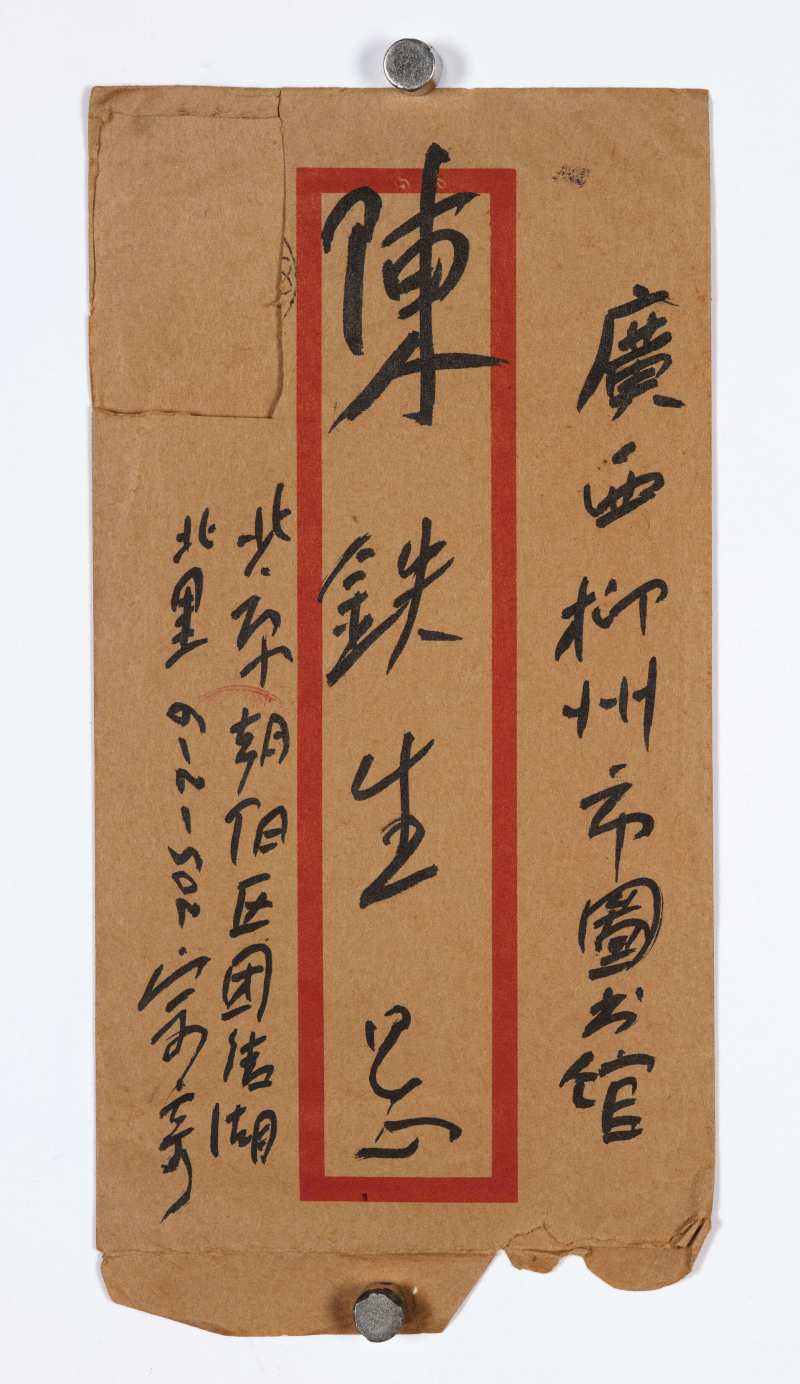 廣西柳州市圖书馆
陳鉄生
北京朝阳区团结湖
北里